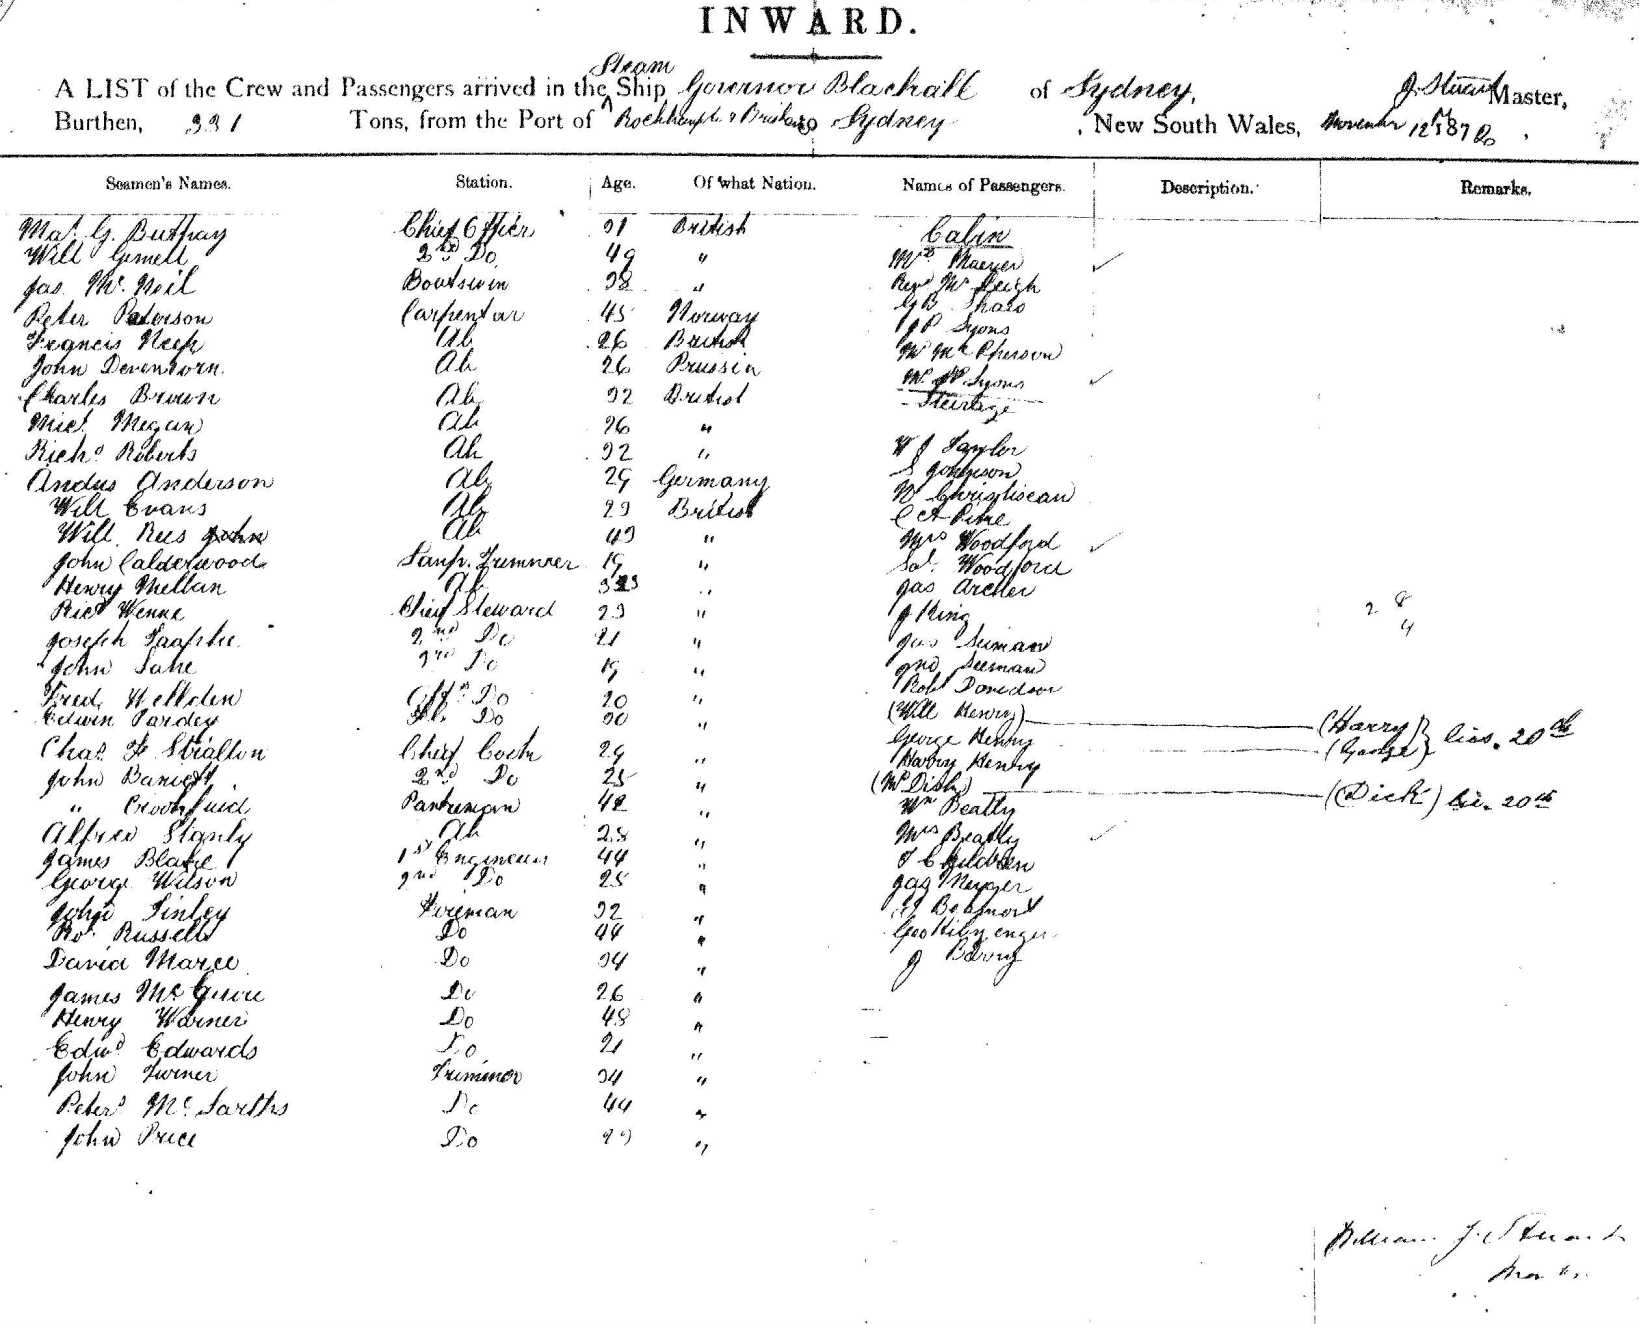 INWARD.
Steam
A LIST of the Crew and Passengers arrived in the Ship Governor Blackall of Sydney, J. Stuart Master,
Burthen, 331 Tons, from the Port of Rockhampt. & Brisbane to Sydney, New South Wales, November 12th 1876.
Seamen's Names. Station. Age. Of what Nation. Names of Passengers. Description. Remarks.
Chief Officer 31 British Cabin
Will Gemell 2nd Do 49 "
Jas. Mc. Neil Boatswin 38 " Revd Mr Leigh
Peter Peterson Carpenter 45 Norway G B Shaw
Francis Ab 26 British J P Lyons
John Devenborn Ab 26 Prussia Mr McPherson
Charles Brown Ab 32 British Mrs J P Lyons
Steerage
Micl. Megan Ab 26 "
Richd Roberts Ab 32 " W J Taylor
Andus Anderson Ab 29 Germany S Johnson
Will Evans Ab 23 British N Christisean
Will. Rees John Ab 43 " C A Pine
John Calderwood Lamp. Trimmer 19 " Mrs Woodford
Henry Mellan Ab " Sol. Woodford
Ricd Wenne Chief Steward 23 " Jas Archer
Joseph 2nd Do 21 " J King
John Lane 3rd Do 19 " Jas Seiman
Jno Seeman
Fred. Weldden Do 20 " Robt Davidson
Edwin Pardey Do 30 " (Will Henry) (Harry) lics. 20th
Chas F Stratton Chief Cook 29 " George Henry (George)
John Barnett 2nd Do 25 " Harry Henry
(Mr Dick) (Dick) lic. 20th
" Pantreman 42 " Wm Beatty
Alfred Stanly Ab 28 " Mrs Beatty
James Blake 1st Engineer 44 " 
George Wilson 2nd Do 25 " Jas
John Finley Fireman 32 "
Ro. Russell Do 44 " Geo
David Do 34 " J Barry
James Mc Do 26 "
Henry Warner Do 48 "
Edwd Edwards Do 21 "
John Turner Trimmer 34 "
Peter Mc. Do 44 "
John Price Do "
2 8
4
William J. Stuart
Master